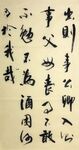 出則事公卿入則
事父兄喪事不敢
不勉不為酒困何
有於我哉